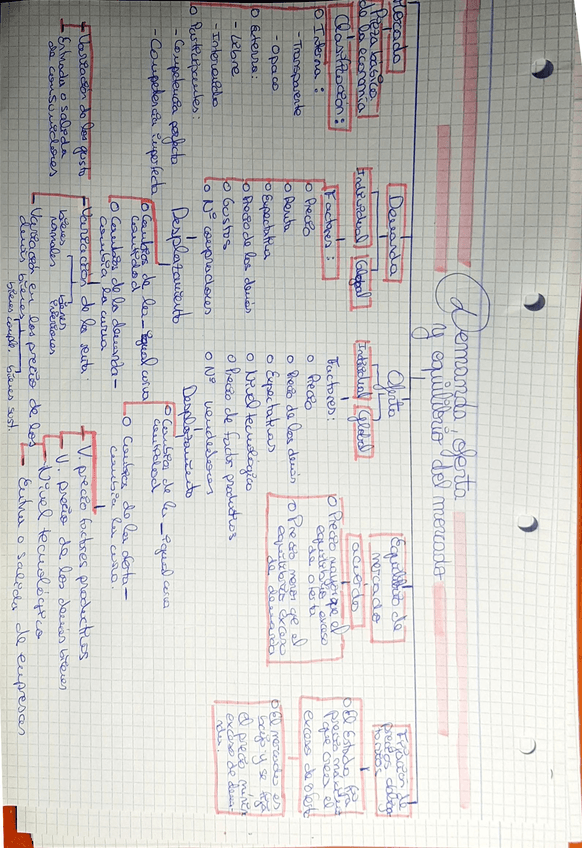 Demanda, oferta
y equilibrio del mercado
Mercado
Pieza básica
de la economía
Clasificación:
O Interna:
- Transparente
- Opaco
O Externa:
- Libre
- Intervenido
O Participantes:
- Competencia perfecta
- Competencia imperfecta
Demanda
Individual Global
Factores:
O Precio
O Renta
O Expectativa
O Precio de los demás
O Gustos
O Nº compradores
Desplazamiento
O Cambios de la - igual curva
cantidad
O Cambios de la demanda -
cambia la curva
- Variación de los gustos
Entrada o salida
de consumidores
- Variación de la renta
bienes normales
bienes inferiores
- Variación en los precios de los
demás bienes
bienes compl. bienes sust
Oferta
Individual Global
Factores:
O Precio
O Precio de los demás
O Expectativas
O Nivel tecnológico
O Precio de factor productivos
O Nº vendedores
Desplazamiento
O Cambios de la - igual curva
cantidad
O Cambios de la oferta -
cambia la curva
- V. precio factores productivos
- V. precio de los demás bienes
- Nivel tecnológico
- Entra o salida de empresas
Equilibrio de
mercado
acuerdo
O Precio mayor que el
equilibrio exceso
de oferta
O Precio menor que el
equilibrio exceso
de demanda
Fijación de
precios
O El Estado fija
precio
que crea el
exceso de oferta
O El mercado es
bajo y se fija
el precio
exceso de